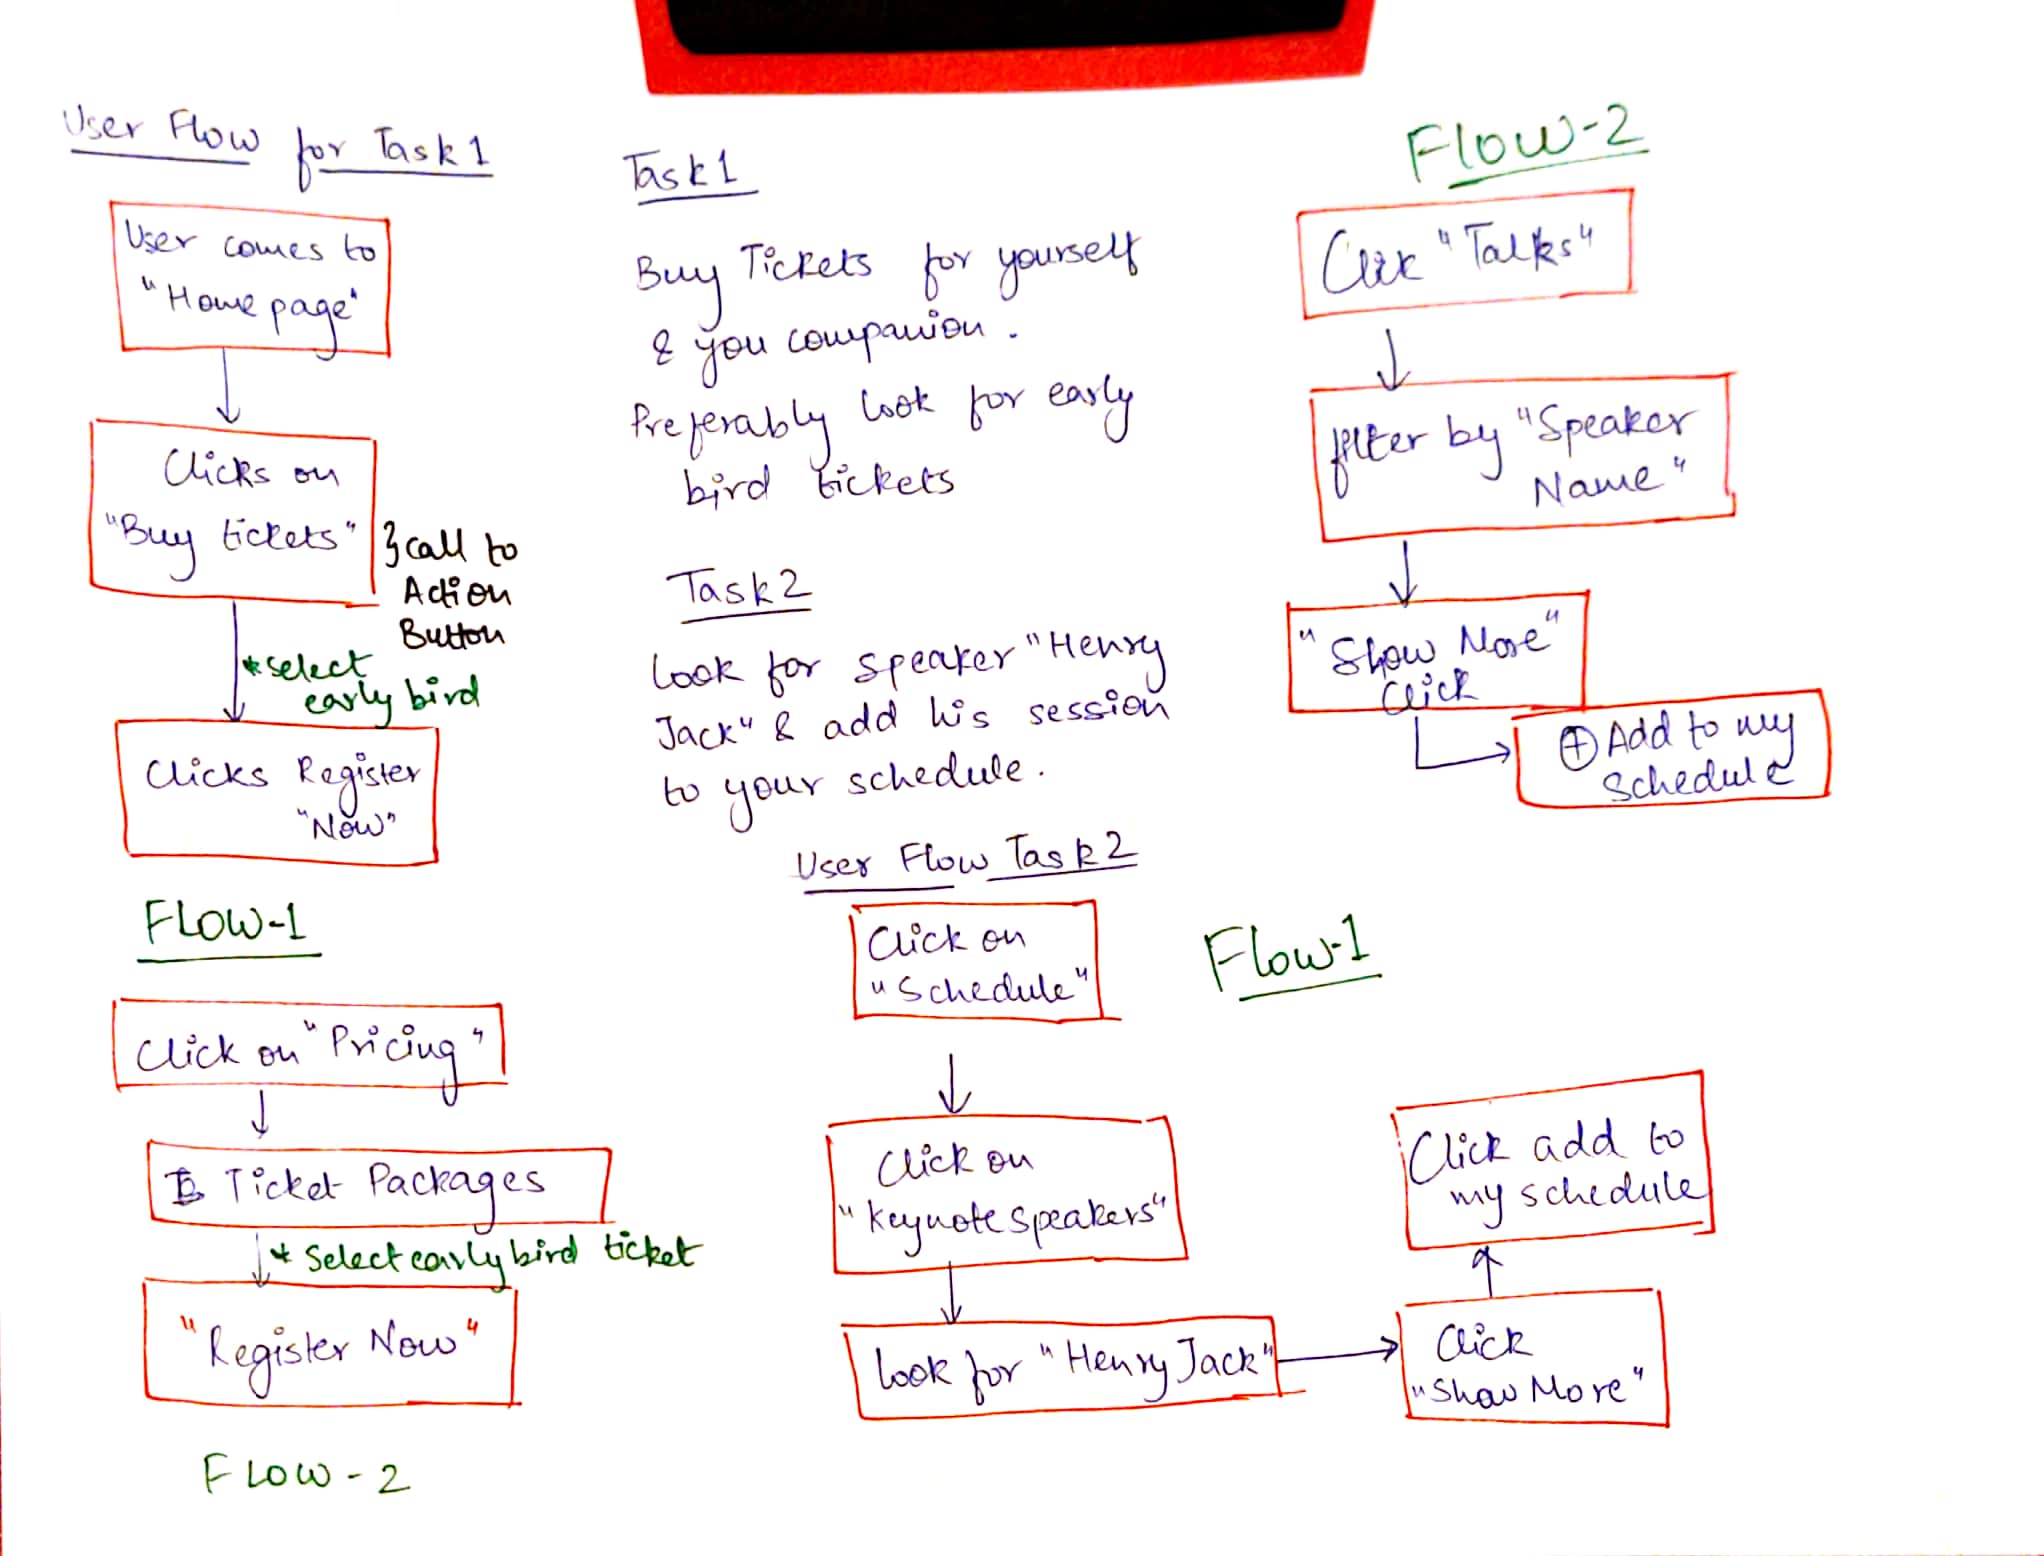 User Flow for Task 1
User comes to
"Home page"
Clicks on
"Buy tickets"
} call to
Action
Button
* select
early bird
Clicks Register
"Now"
FLOW-1
Click on "Pricing"
Ticket Packages
* Select early bird ticket
"Register Now"
FLOW-2
Task 1
Buy Tickets for yourself
& you companion.
Preferably look for early
bird tickets
Task 2
Look for speaker "Henry
Jack" & add his session
to your schedule.
User Flow Task 2
Click on
"Schedule"
Flow-1
Click on
"keynote speakers"
look for "Henry Jack"
Click
"Show More"
Click add to
my schedule
Flow-2
Click "Talks"
filter by "Speaker
Name"
"Show More"
Click
+ Add to my
schedule